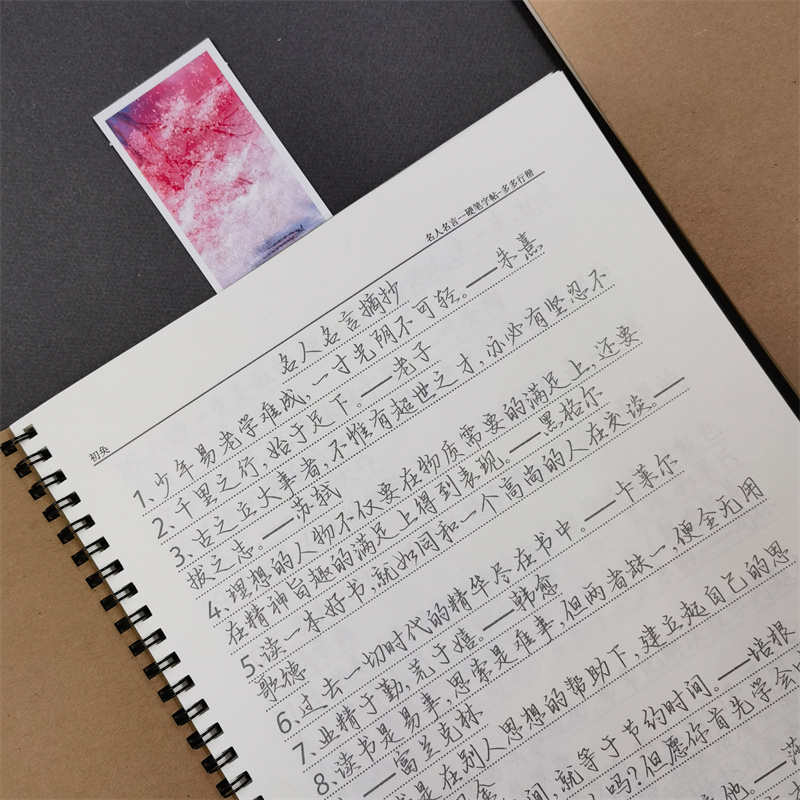 名人名言—硬笔字帖-多多行楷
初奂
名人名言摘抄
1、少年易老学难成,一寸光阴不可轻。——朱熹
2、千里之行,始于足下。——老子
3、古之立大事者,不惟有超世之才,亦必有坚忍不
拔之志。——苏轼
4、理想的人物不仅要在物质需要的满足上,还要
在精神旨趣的满足上得到表现。——黑格尔
5、读一本好书,就如同和一个高尚的人在交谈。——
歌德
6、过去一切时代的精华尽在书中。——卡莱尔
7、业精于勤,荒于嬉。——韩愈
8、读书是易事,思索是难事,但两者缺一,便全无用
——富兰克林
是在别人思想的帮助下,建立起自己的思
间,就等于节约时间。——培根
人吗?但愿你首先学会